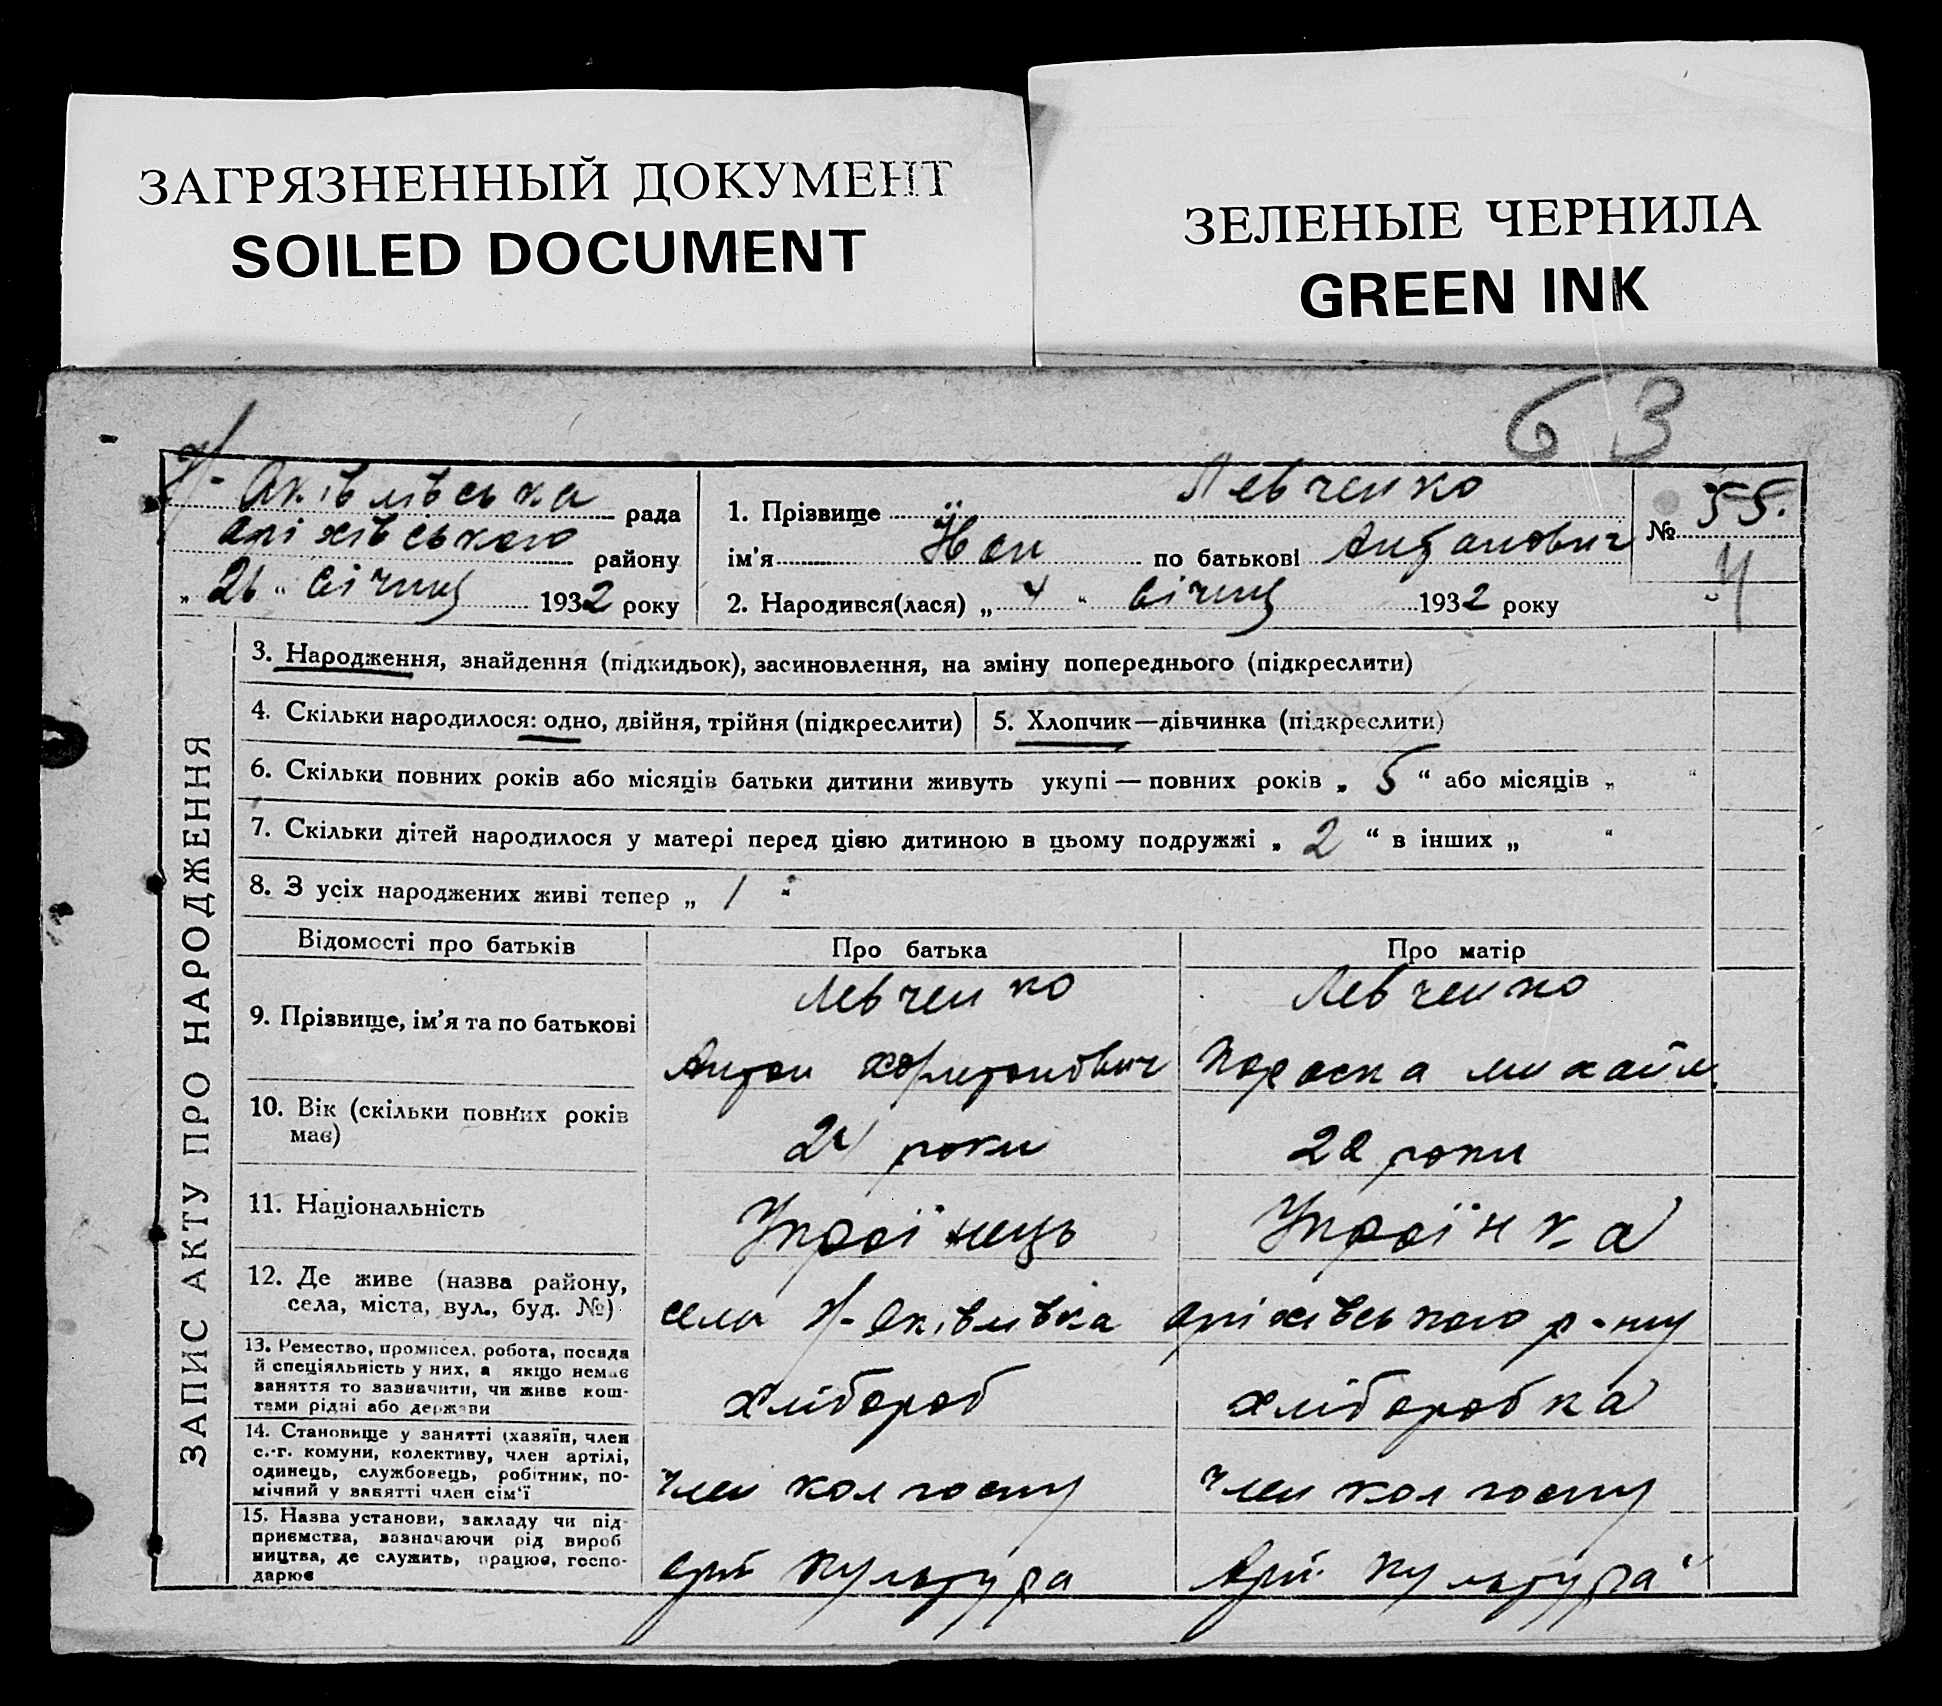 ЗАГРЯЗНЕННЫЙ ДОКУМЕНТ
SOILED DOCUMENT
ЗЕЛЕНЫЕ ЧЕРНИЛА
GREEN INK
63
Н-Яківлівська рада
Оріхівського району
„ 26 “ Січня 1932 року
1. Прізвище Левченко
ім'я Йон по батькові Антанович
2. Народився(лася) „ 4 “ Січня 1932 року
№ 55.
Ч
ЗАПИС АКТУ ПРО НАРОДЖЕННЯ
3. Народження, знайдення (підкидьок), засиновлення, на зміну попереднього (підкреслити)
4. Скільки народилося: одно, двійня, трійня (підкреслити)
5. Хлопчик—дівчинка (підкреслити)
6. Скільки повних років або місяців батьки дитини живуть укупі — повних років „ 5 “ або місяців „ “
7. Скільки дітей народилося у матері перед цією дитиною в цьому подружжі „ 2 “ в інших „ “
8. З усіх народжених живі тепер „ 1 “
Відомості про батьків
Про батька
Про матір
9. Прізвище, ім'я та по батькові
Левченко
Антон Харитонович
Левченко
Параска михайл.
10. Вік (скільки повних років
має)
24 роки
22 роки
11. Національність
Українець
Українка
12. Де живе (назва району,
села, міста, вул., буд. №)
село Н-Яківлівка Оріхівського р-ну
13. Ремество, промисел, робота, посада
й спеціяльність у них, а якщо немає
заняття то зазначити, чи живе кош-
тами рідні або держави
хлібороб
хліборобка
14. Становище у занятті (хазяїн, член
с.-г. комуни, колективу, член артілі,
одинець, службовець, робітник, по-
мічний у занятті член сім'ї
член колгоспу
член колгоспу
15. Назва установи, закладу чи під-
приємства, зазначаючи рід вироб
ництва, де служить, працює, госпо-
дарює
культура
культура